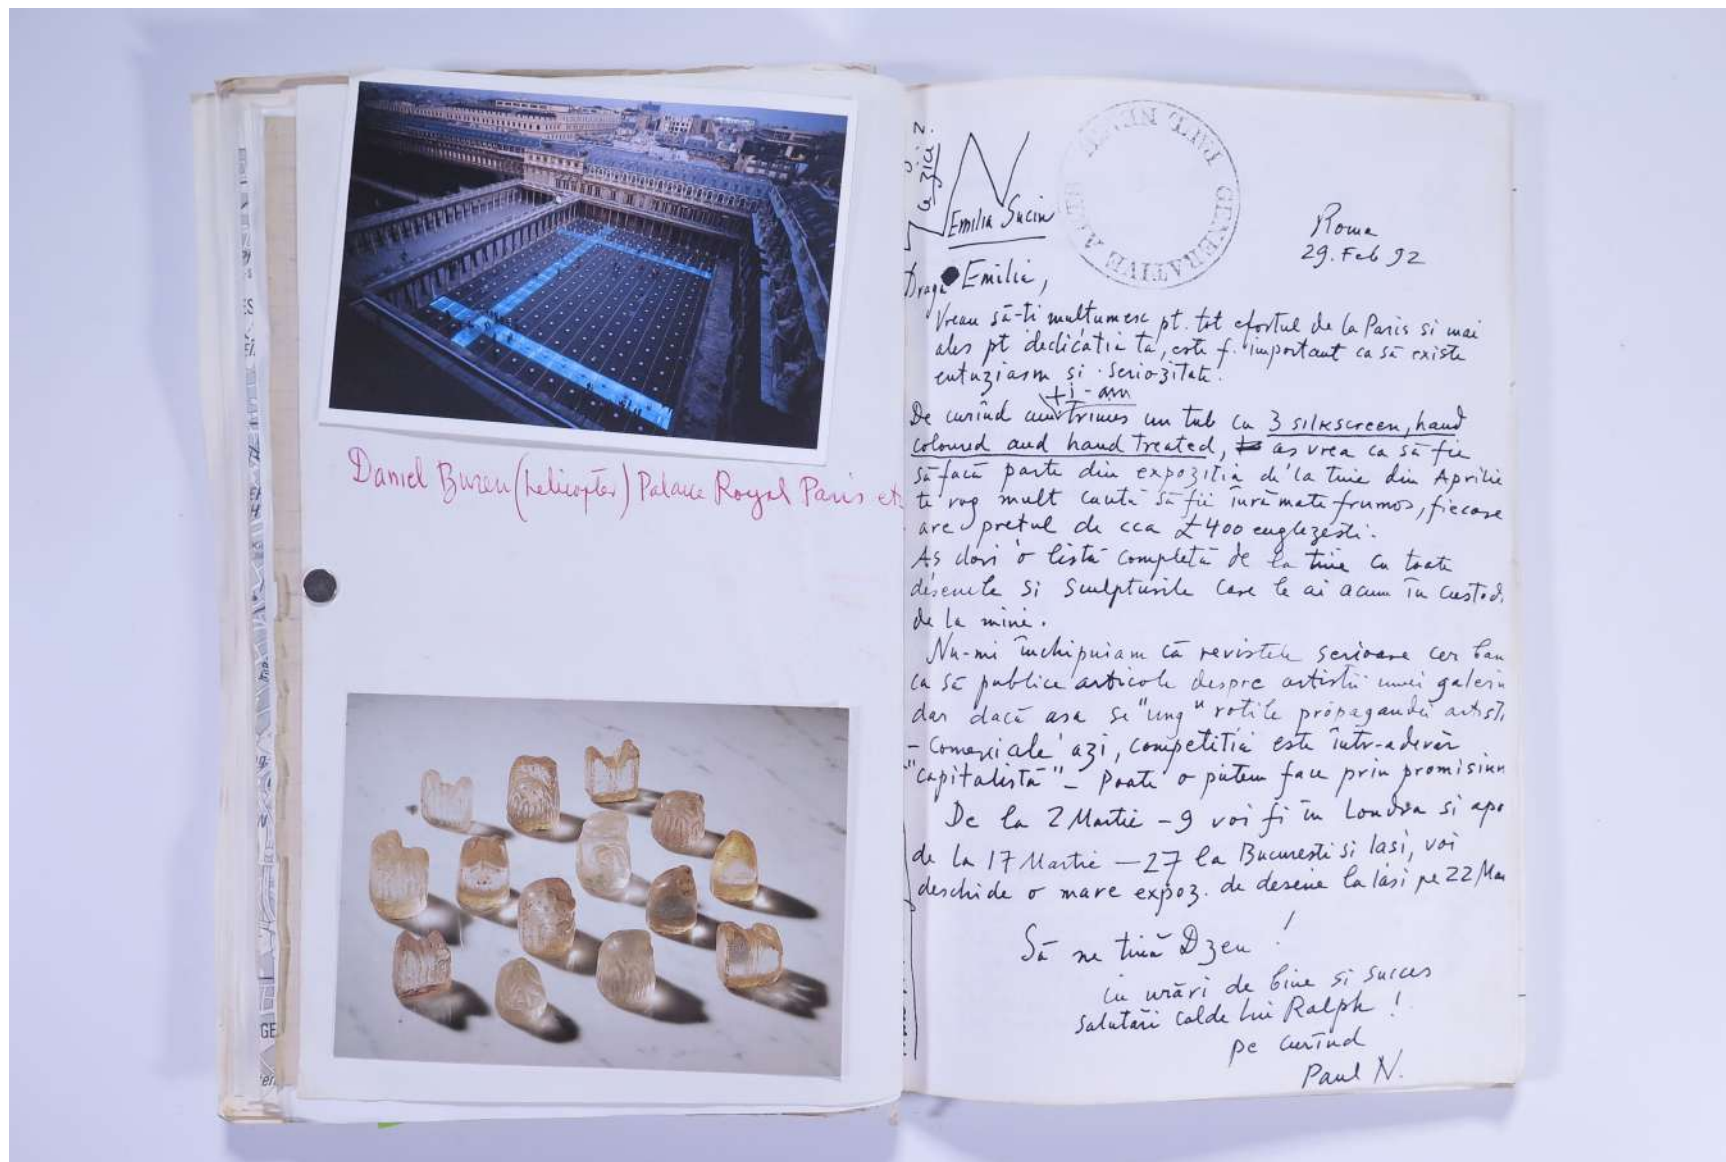 Daniel Buren (helicopter) Palace Royal Paris etc
N
Emilia Suciu
GENERATIVE ART
Roma
29. Feb 92
Dragă Emilia,
Vreau să-ti multumesc pt. tot efortul de la Paris si mai
ales pt dedicatia ta, este f. important ca să existe
entuziasm si seriozitate.
ti-am
De curînd trimes un tub cu 3 silkscreen, hand
coloured and hand treated, as vrea ca să fie
să facă parte din expozitia de la tine din Aprilie
te rog mult caută să fie înrămate frumos, fiecare
are pretul de cca £400 englezesti.
As dori o listă completă de la tine cu toate
desenele si sculpturile care le ai acum în custod
de la mine.
Nu-mi închipuiam că revistele serioase cer ban
ca să publice articole despre artistii unei galerii
dar dacă asa se "ung" rotile propagandei artisti
- comerciale azi, competitia este într-adevăr
"capitalistă" - poate o putem face prin promisiun
De la 2 Martie - 9 voi fi în Londra si apo
de la 17 Martie - 27 la Bucuresti si Iasi, voi
deschide o mare expoz. de desene la Iasi pe 22 Mar
Să ne tină Dzeu !
cu urări de bine si succes
salutări calde lui Ralph !
pe curînd
Paul N.